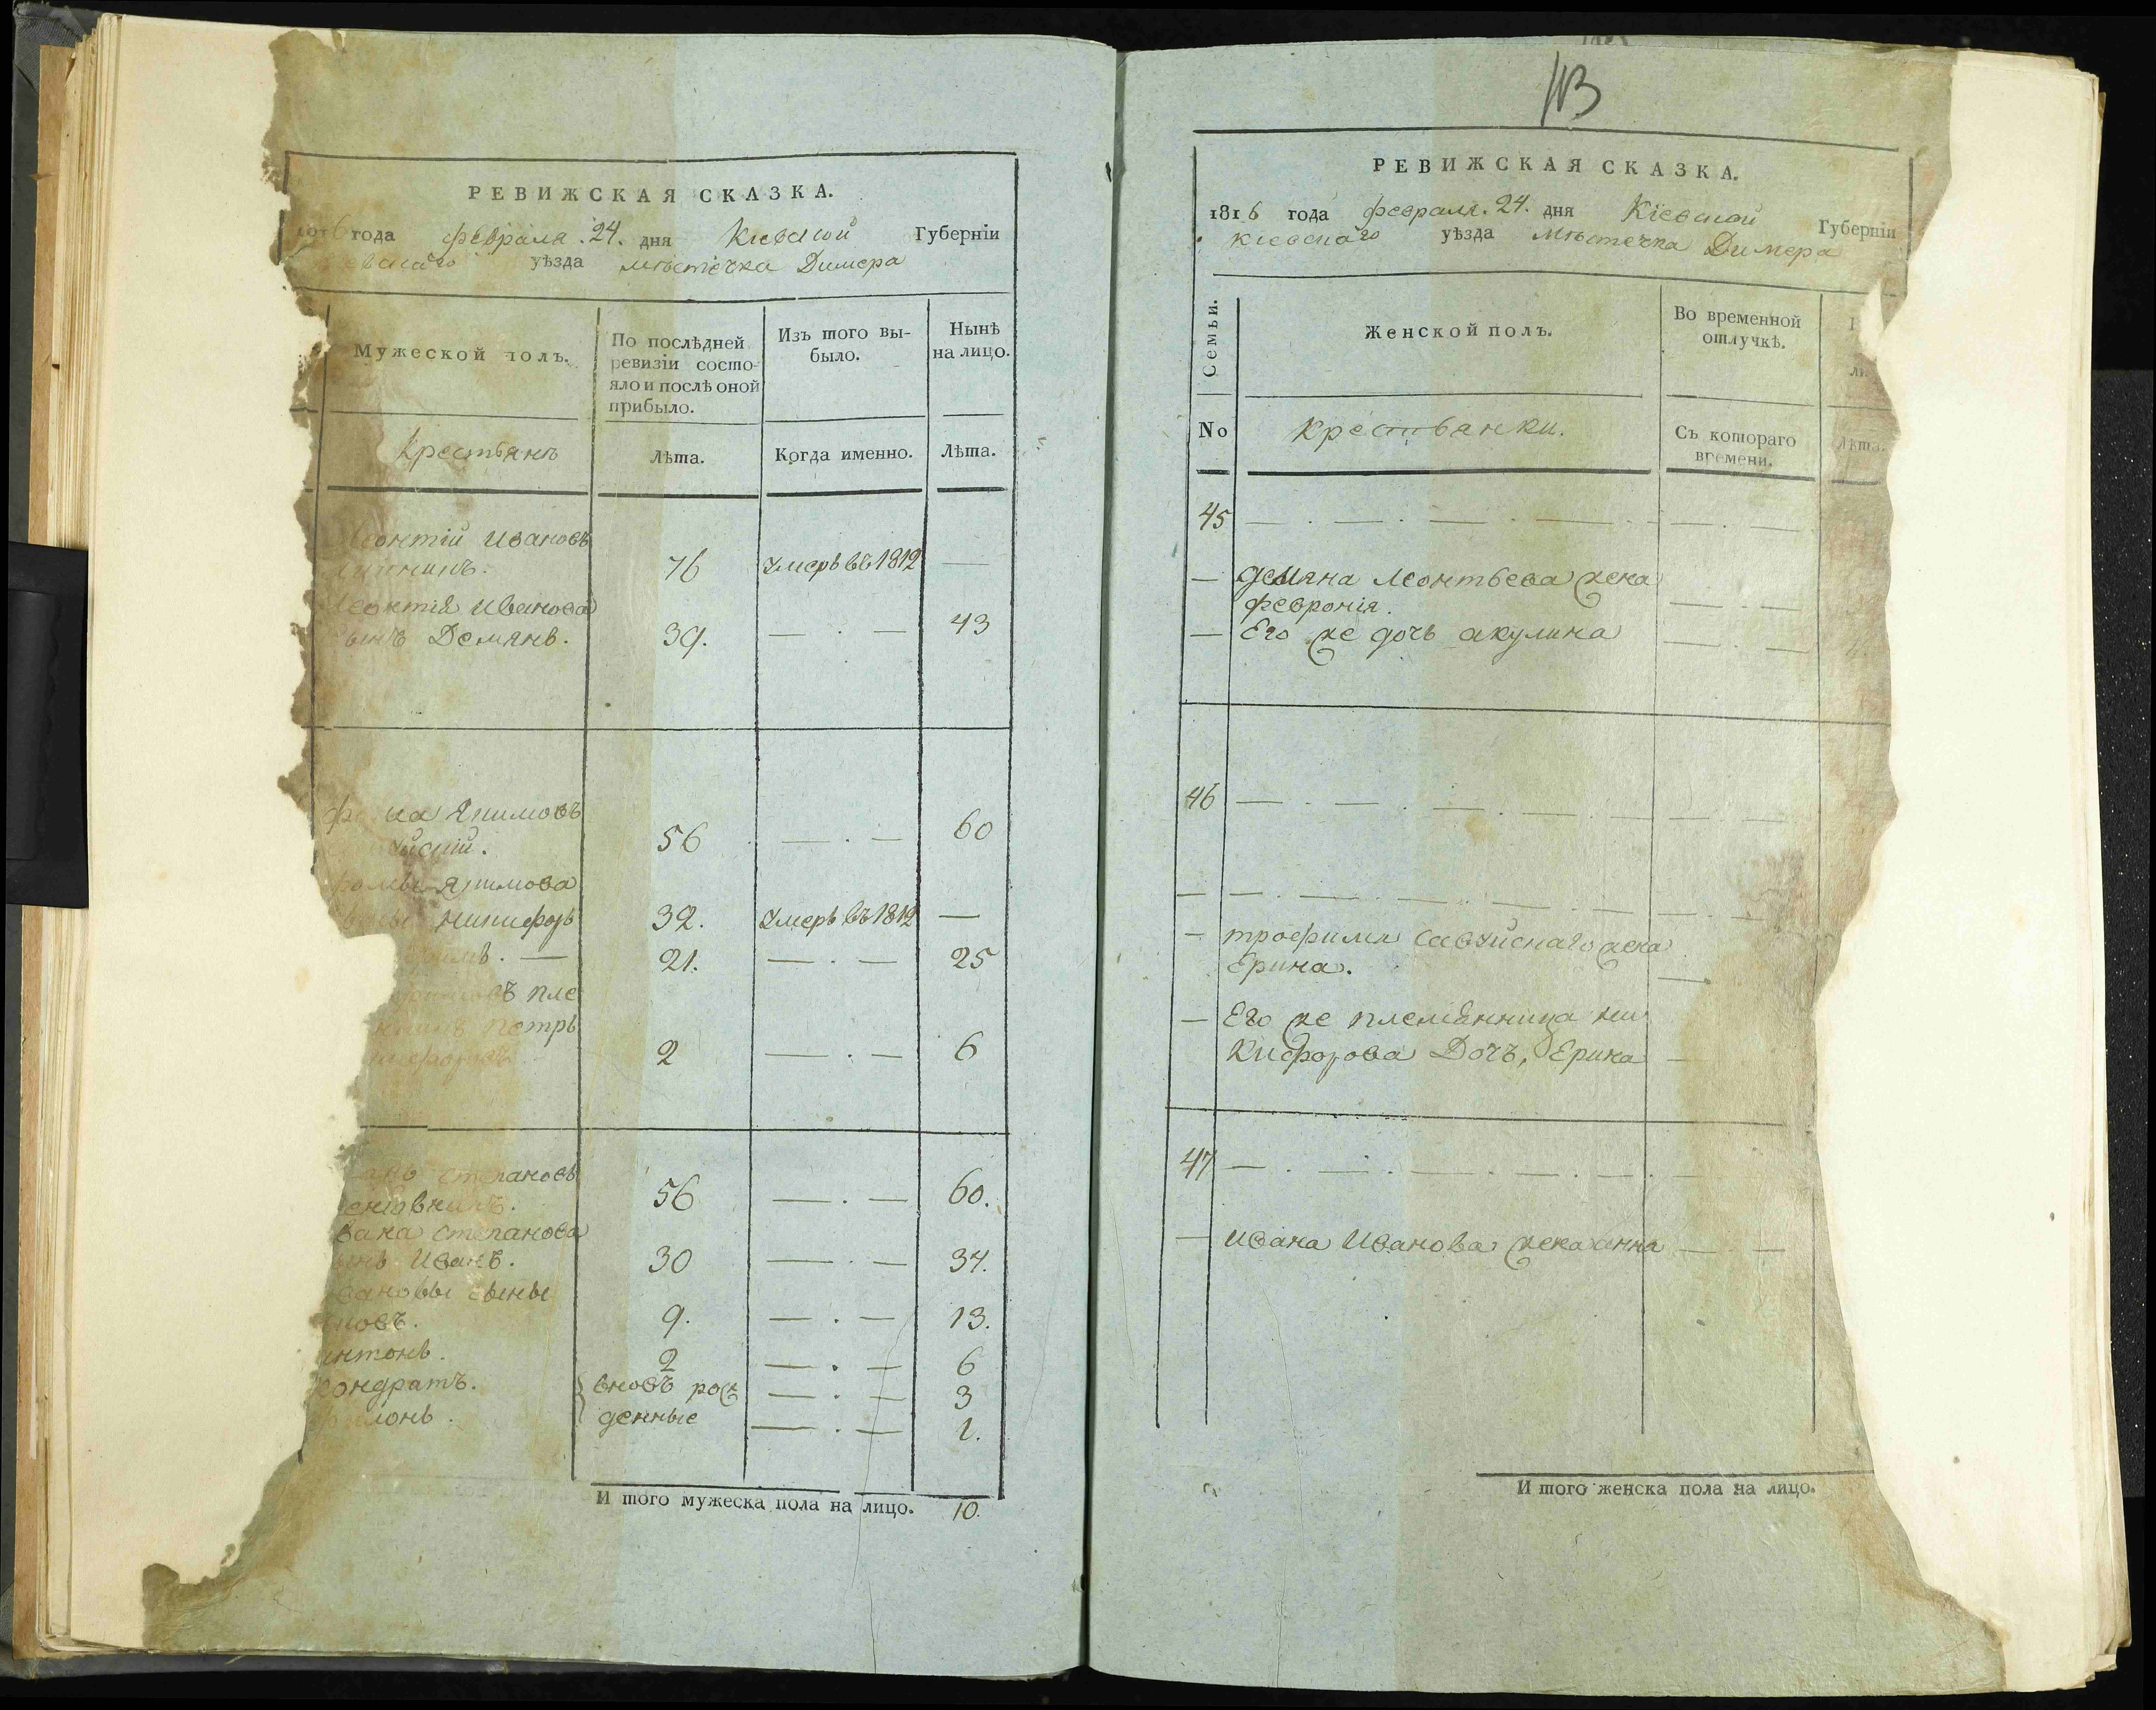 РЕВИЖСКАЯ СКАЗКА.
6 года февраля. 24. дня Кіевской Губерніи
уѣзда мѣстечка Димера
Мужеской полъ.
По послѣдней ревизіи состо-
яло и послѣ оной
прибыло.
Изъ того вы-
было.
Нынѣ
на лицо.
Крестьянъ
Лѣта.
Когда именно.
Лѣта.
Леонтій Ивановъ
76 Умеръ въ 1812 —
Леонтія Иванова
сынъ Демянъ. 39. — . — 43
Якимовъ
56 — . — 60
Якимова
Никифоръ 32. Умеръ въ 1812 —
21. — . — 25
пле
Петръ
2 — . — 6
степановъ
56 — . — 60.
степанова
Иванъ. 30 — . — 34.
сыны
9. — . — 13.
антонъ. 2 — . — 6
кондратъ. вновь рож — . — 3
филонъ. денные — . — 1.
И того мужеска пола на лицо. 10.
113
РЕВИЖСКАЯ СКАЗКА.
1816 года февраля. 24. дня Кіевской Губерніи
Кіевскаго уѣзда мѣстечка Димера
Семьи.
Женской полъ.
Во временной
отлучкѣ.
No
Крестьянки.
Съ котораго
времени.
Лѣта.
45 — . — . — . — . — . —
— демяна леонтьева жена
феврония. — . —
— Его же дочь акулина — . —
46 — . — . — . — . — . —
— — . — . — . — . — . —
— трофима савчискаго жена
Ерина. —
— Его же племянница ни
кифорова Дочь, Ерина —
47 — . — . — . — . — . —
— ивана Иванова жена анна — . —
И того женска пола на лицо.